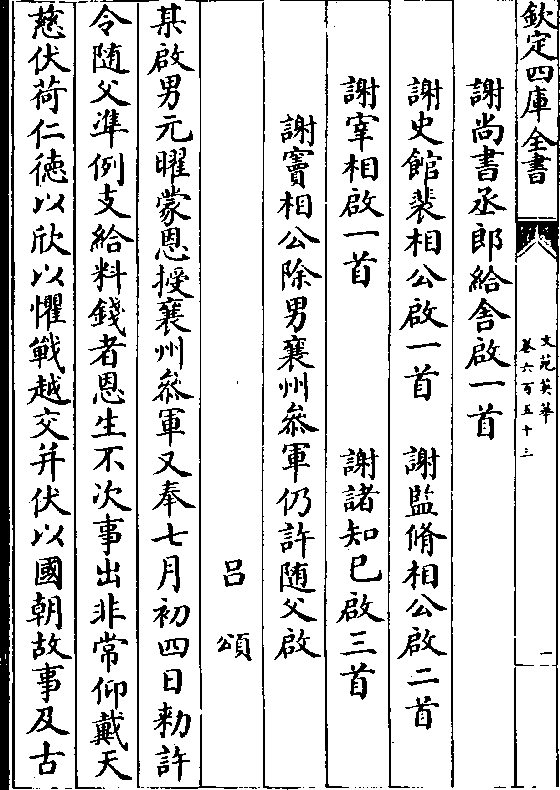 欽定四庫全書
文苑英華
卷六百五十三
一
謝尚書丞郎給舍啟一首
謝史館裴相公啟一首　謝監脩相公啟二首
謝宰相啟一首　謝諸知已啟三首
謝竇相公除男襄州叅軍仍許随父啟
吕頌
某啟男元曜蒙恩授襄州叅軍又奉七月初四日勑許
令随父準例支給料錢者恩生不次事出非常仰戴天
慈伏荷仁徳以欣以懼戰越交并伏以國朝故事及古